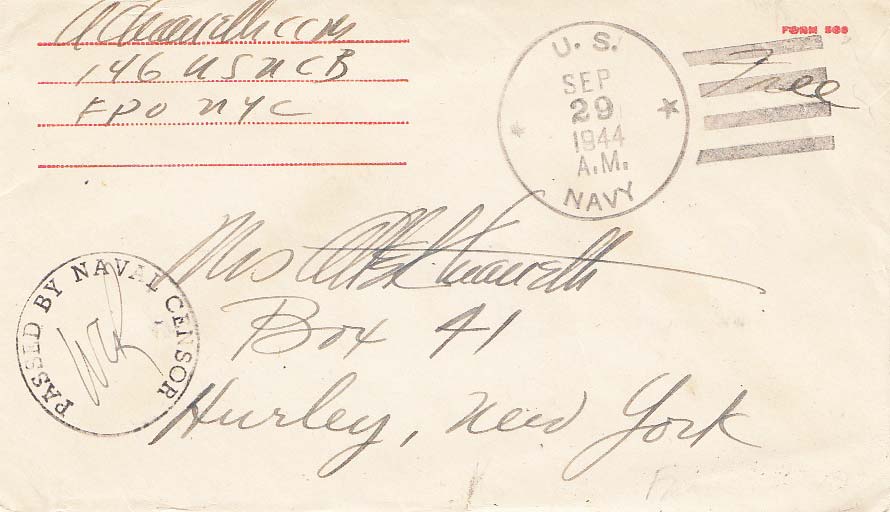 146 USNCB
FPO NYC
FORM 509
U. S.
SEP
29
1944
A.M.
NAVY
Free
PASSED BY NAVAL CENSOR
Mrs
Box 41
Hurley, New York